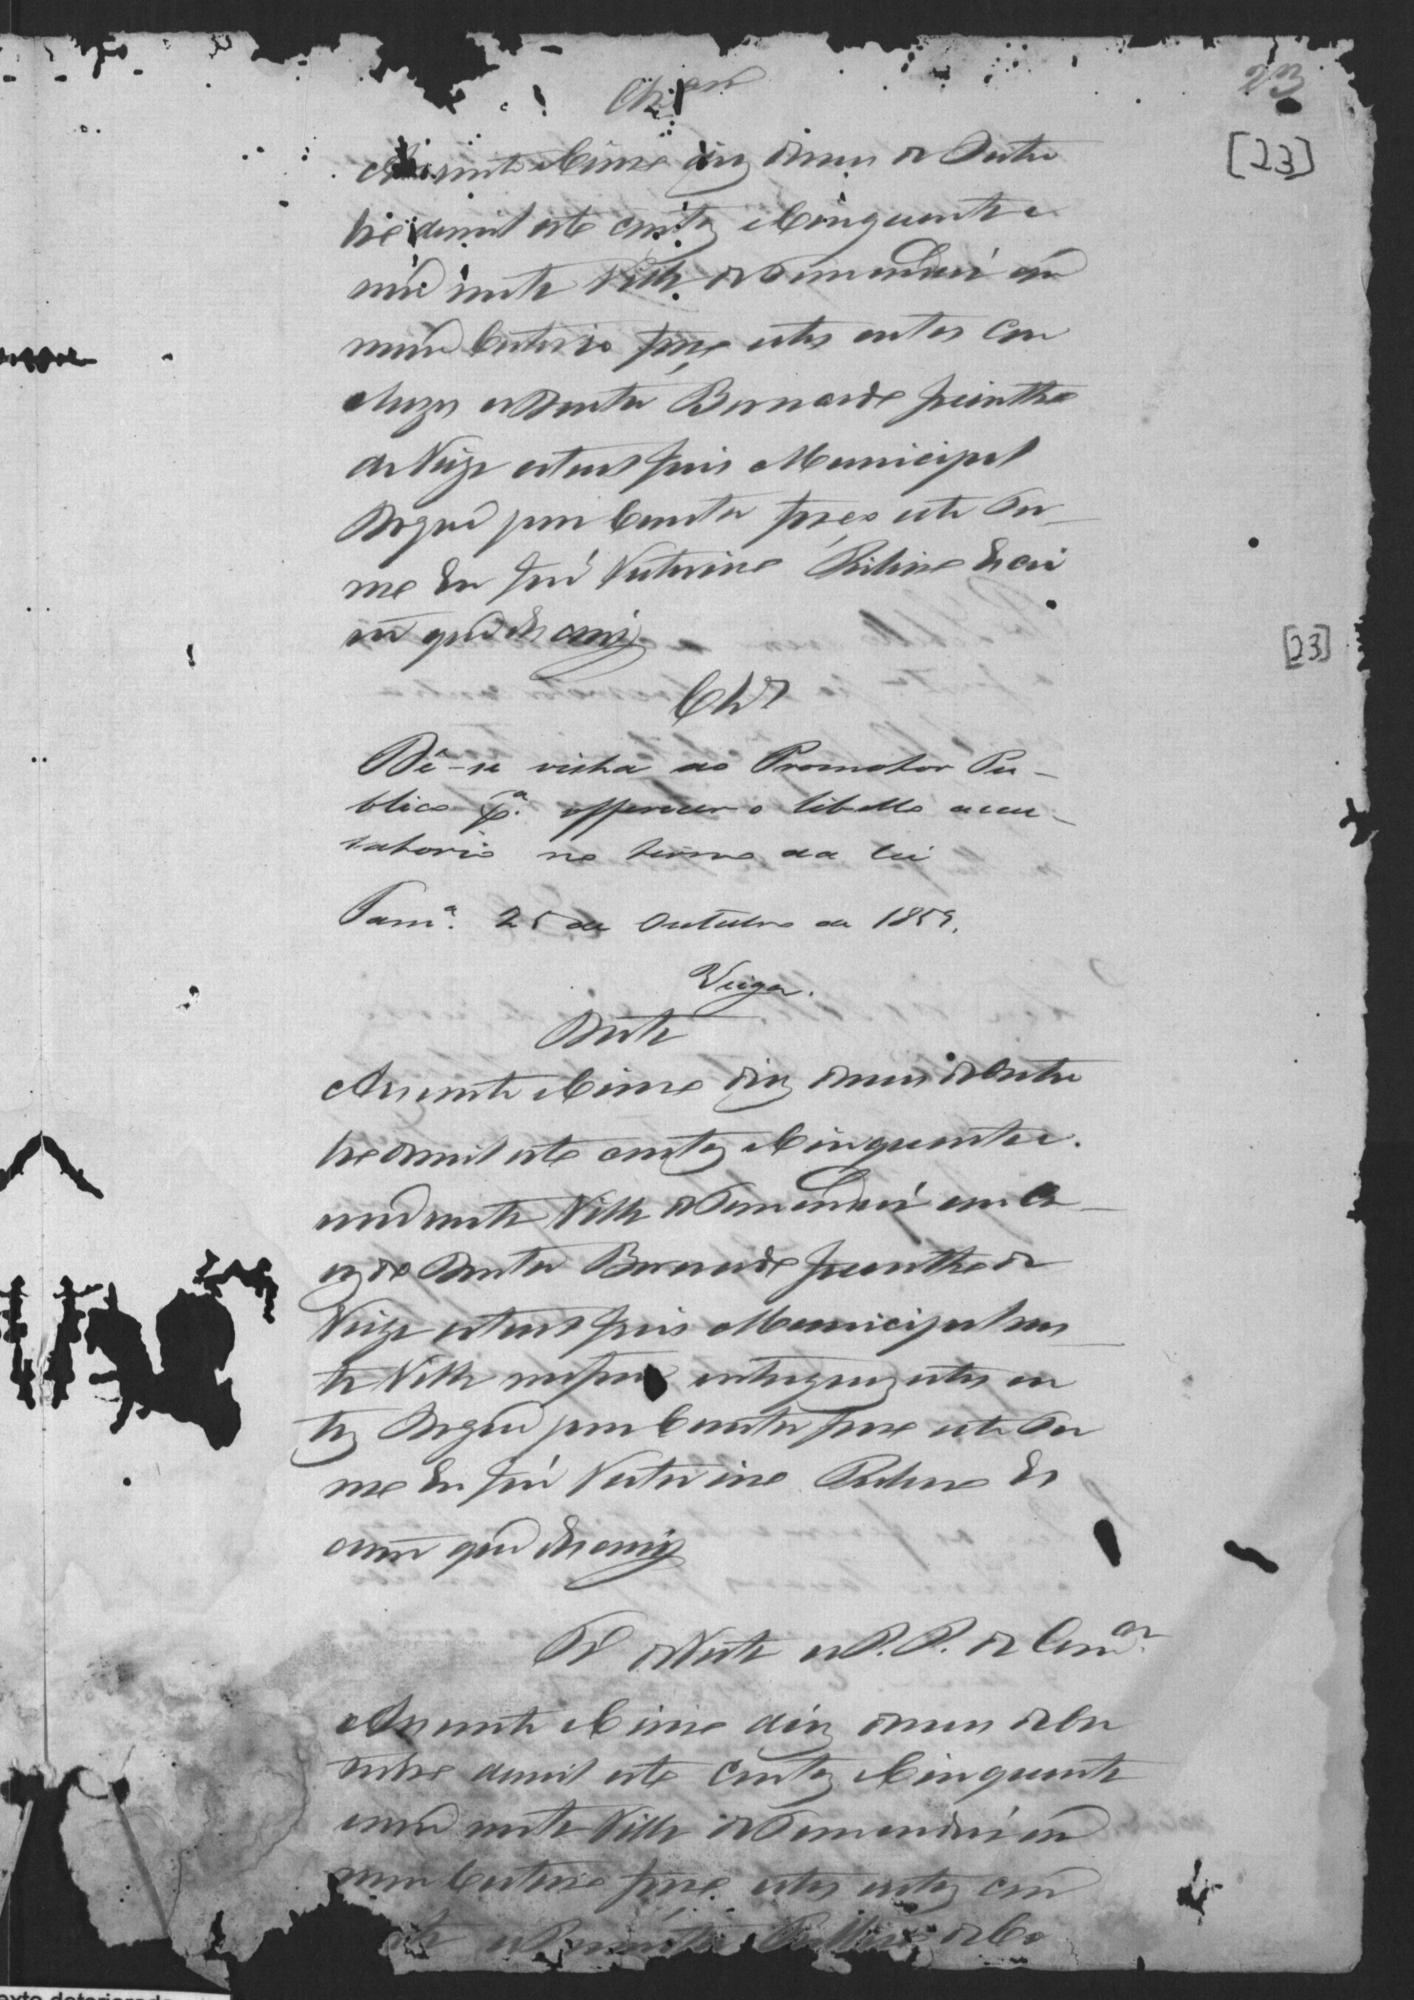 23
[23]
Clzam
Aos vinte e Cinco dias do mes de Outu
bro de mil oito centos e Cincoenta e
nove nesta Villa de Tamanduá em
meu Cartorio faço estes autos con
cluzos ao Doutor Bernardo Jacintho
da Veiga actual Juis Municipal
do que para Constar faço este Ter-
mo Eu José Victorino Ribeiro Escri
vam que Escrevi
[23]
Clzos
Dê-se vista ao Promotor Pu-
blico pa. offerecer o libello accu-
satorio no termo da lei
Tama. 25 de Outubro de 1859.
Veiga.
Data
Aos vinte e Cinco dias do mes de Outu
bro de mil oito centos e Cincoenta e
nove nesta Villa de Tamanduá em Ca-
za do Doutor Bernardo Jacintho da
Veiga actual Juis Municipal nes-
ta Villa me forão entregues estes au
tos do que para Constar faço este Ter
mo Eu José Victorino Ribeiro Es
crivam que Escrevi
de Vista ao P. P. da Comar
Aos vinte e Cinco dias do mes de Ou
tubro de mil oito centos e Cincoenta
e nove nesta Villa de Tamanduá em
meu Cartorio faço estes autos com
vista ao Promotor Publico da Co